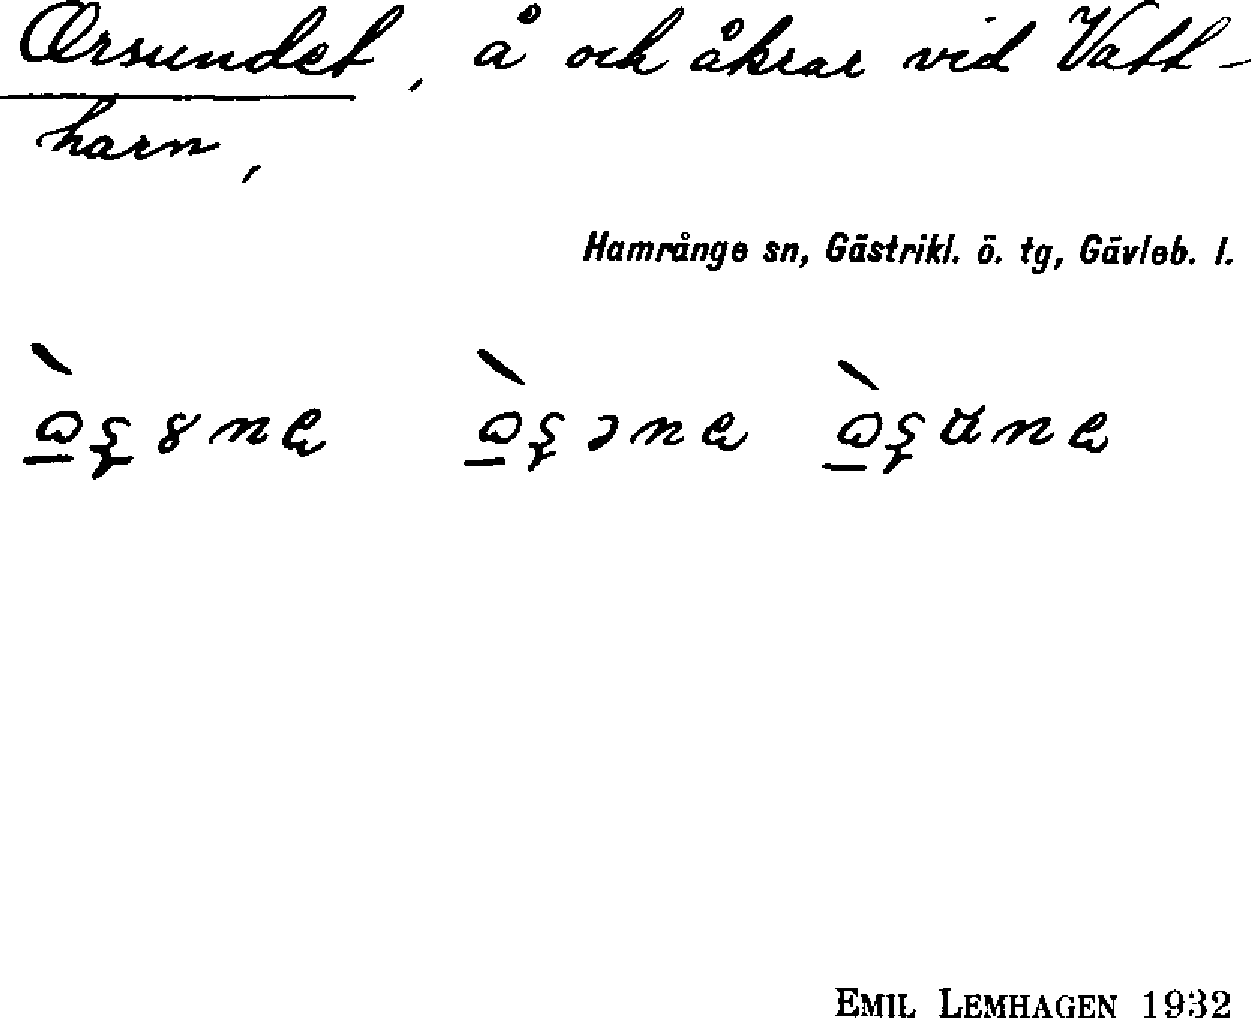 Ørsundet, å och åkrar vid Vatt-
harn,
Hamrånge sn, Gästrikl. ö. tg, Gävleb. l.
EMIL LEMHAGEN 1932